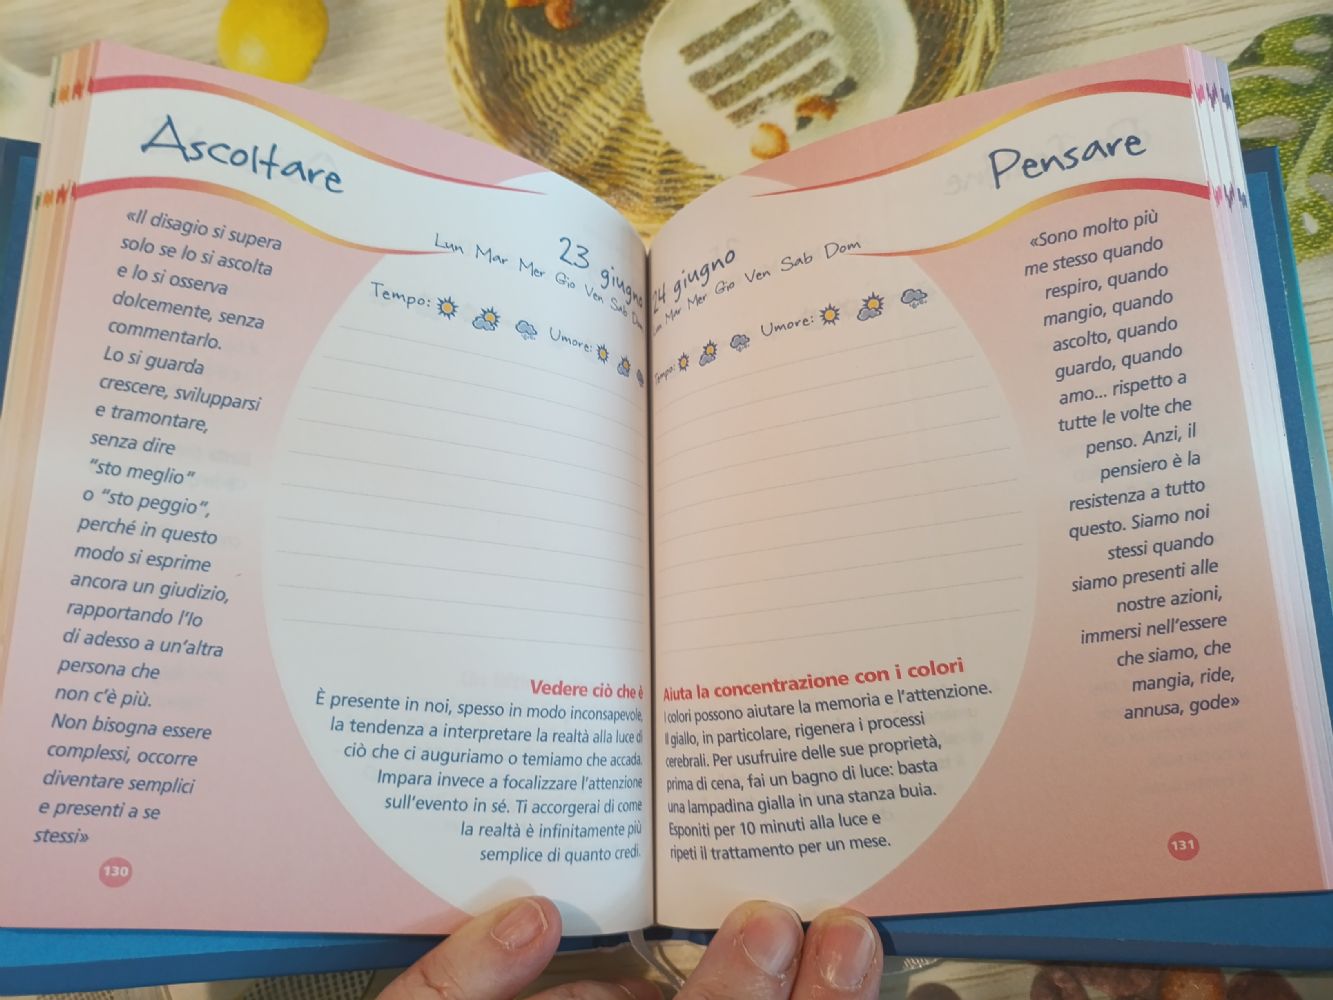 Ascoltare
«Il disagio si supera
solo se lo si ascolta
e lo si osserva
dolcemente, senza
commentarlo.
Lo si guarda
crescere, svilupparsi
e tramontare,
senza dire
“sto meglio”
o “sto peggio”,
perché in questo
modo si esprime
ancora un giudizio,
rapportando l'Io
di adesso a un'altra
persona che
non c'è più.
Non bisogna essere
complessi, occorre
diventare semplici
e presenti a se
stessi»
130
23 giugno
Lun Mar Mer Gio Ven Sab Dom
Tempo: Umore:
Vedere ciò che è
È presente in noi, spesso in modo inconsapevole,
la tendenza a interpretare la realtà alla luce di
ciò che ci auguriamo o temiamo che accada.
Impara invece a focalizzare l'attenzione
sull'evento in sé. Ti accorgerai di come
la realtà è infinitamente più
semplice di quanto credi.
Pensare
24 giugno
Lun Mar Mer Gio Ven Sab Dom
Tempo: Umore:
Aiuta la concentrazione con i colori
I colori possono aiutare la memoria e l'attenzione.
Il giallo, in particolare, rigenera i processi
cerebrali. Per usufruire delle sue proprietà,
prima di cena, fai un bagno di luce: basta
una lampadina gialla in una stanza buia.
Esponiti per 10 minuti alla luce e
ripeti il trattamento per un mese.
«Sono molto più
me stesso quando
respiro, quando
mangio, quando
ascolto, quando
guardo, quando
amo... rispetto a
tutte le volte che
penso. Anzi, il
pensiero è la
resistenza a tutto
questo. Siamo noi
stessi quando
siamo presenti alle
nostre azioni,
immersi nell'essere
che siamo, che
mangia, ride,
annusa, gode»
131